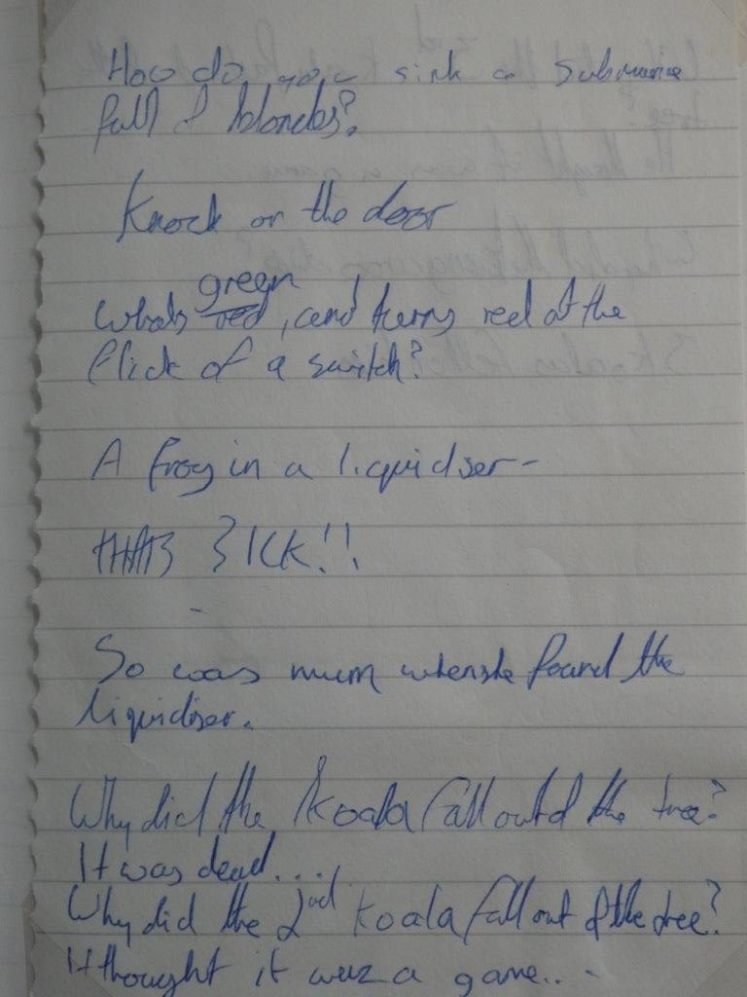 How do you sink a submarine
full of blondes?
Knock on the door
green
Whats red, and turns red at the
flick of a switch?
A frog in a liquidser-
THATS SICK!!
So was mum when she found the
liquidiser.
Why did the koala fall out of the tree?
It was dead....
Why did the 2nd koala fall out of the tree?
It thought it was a game...